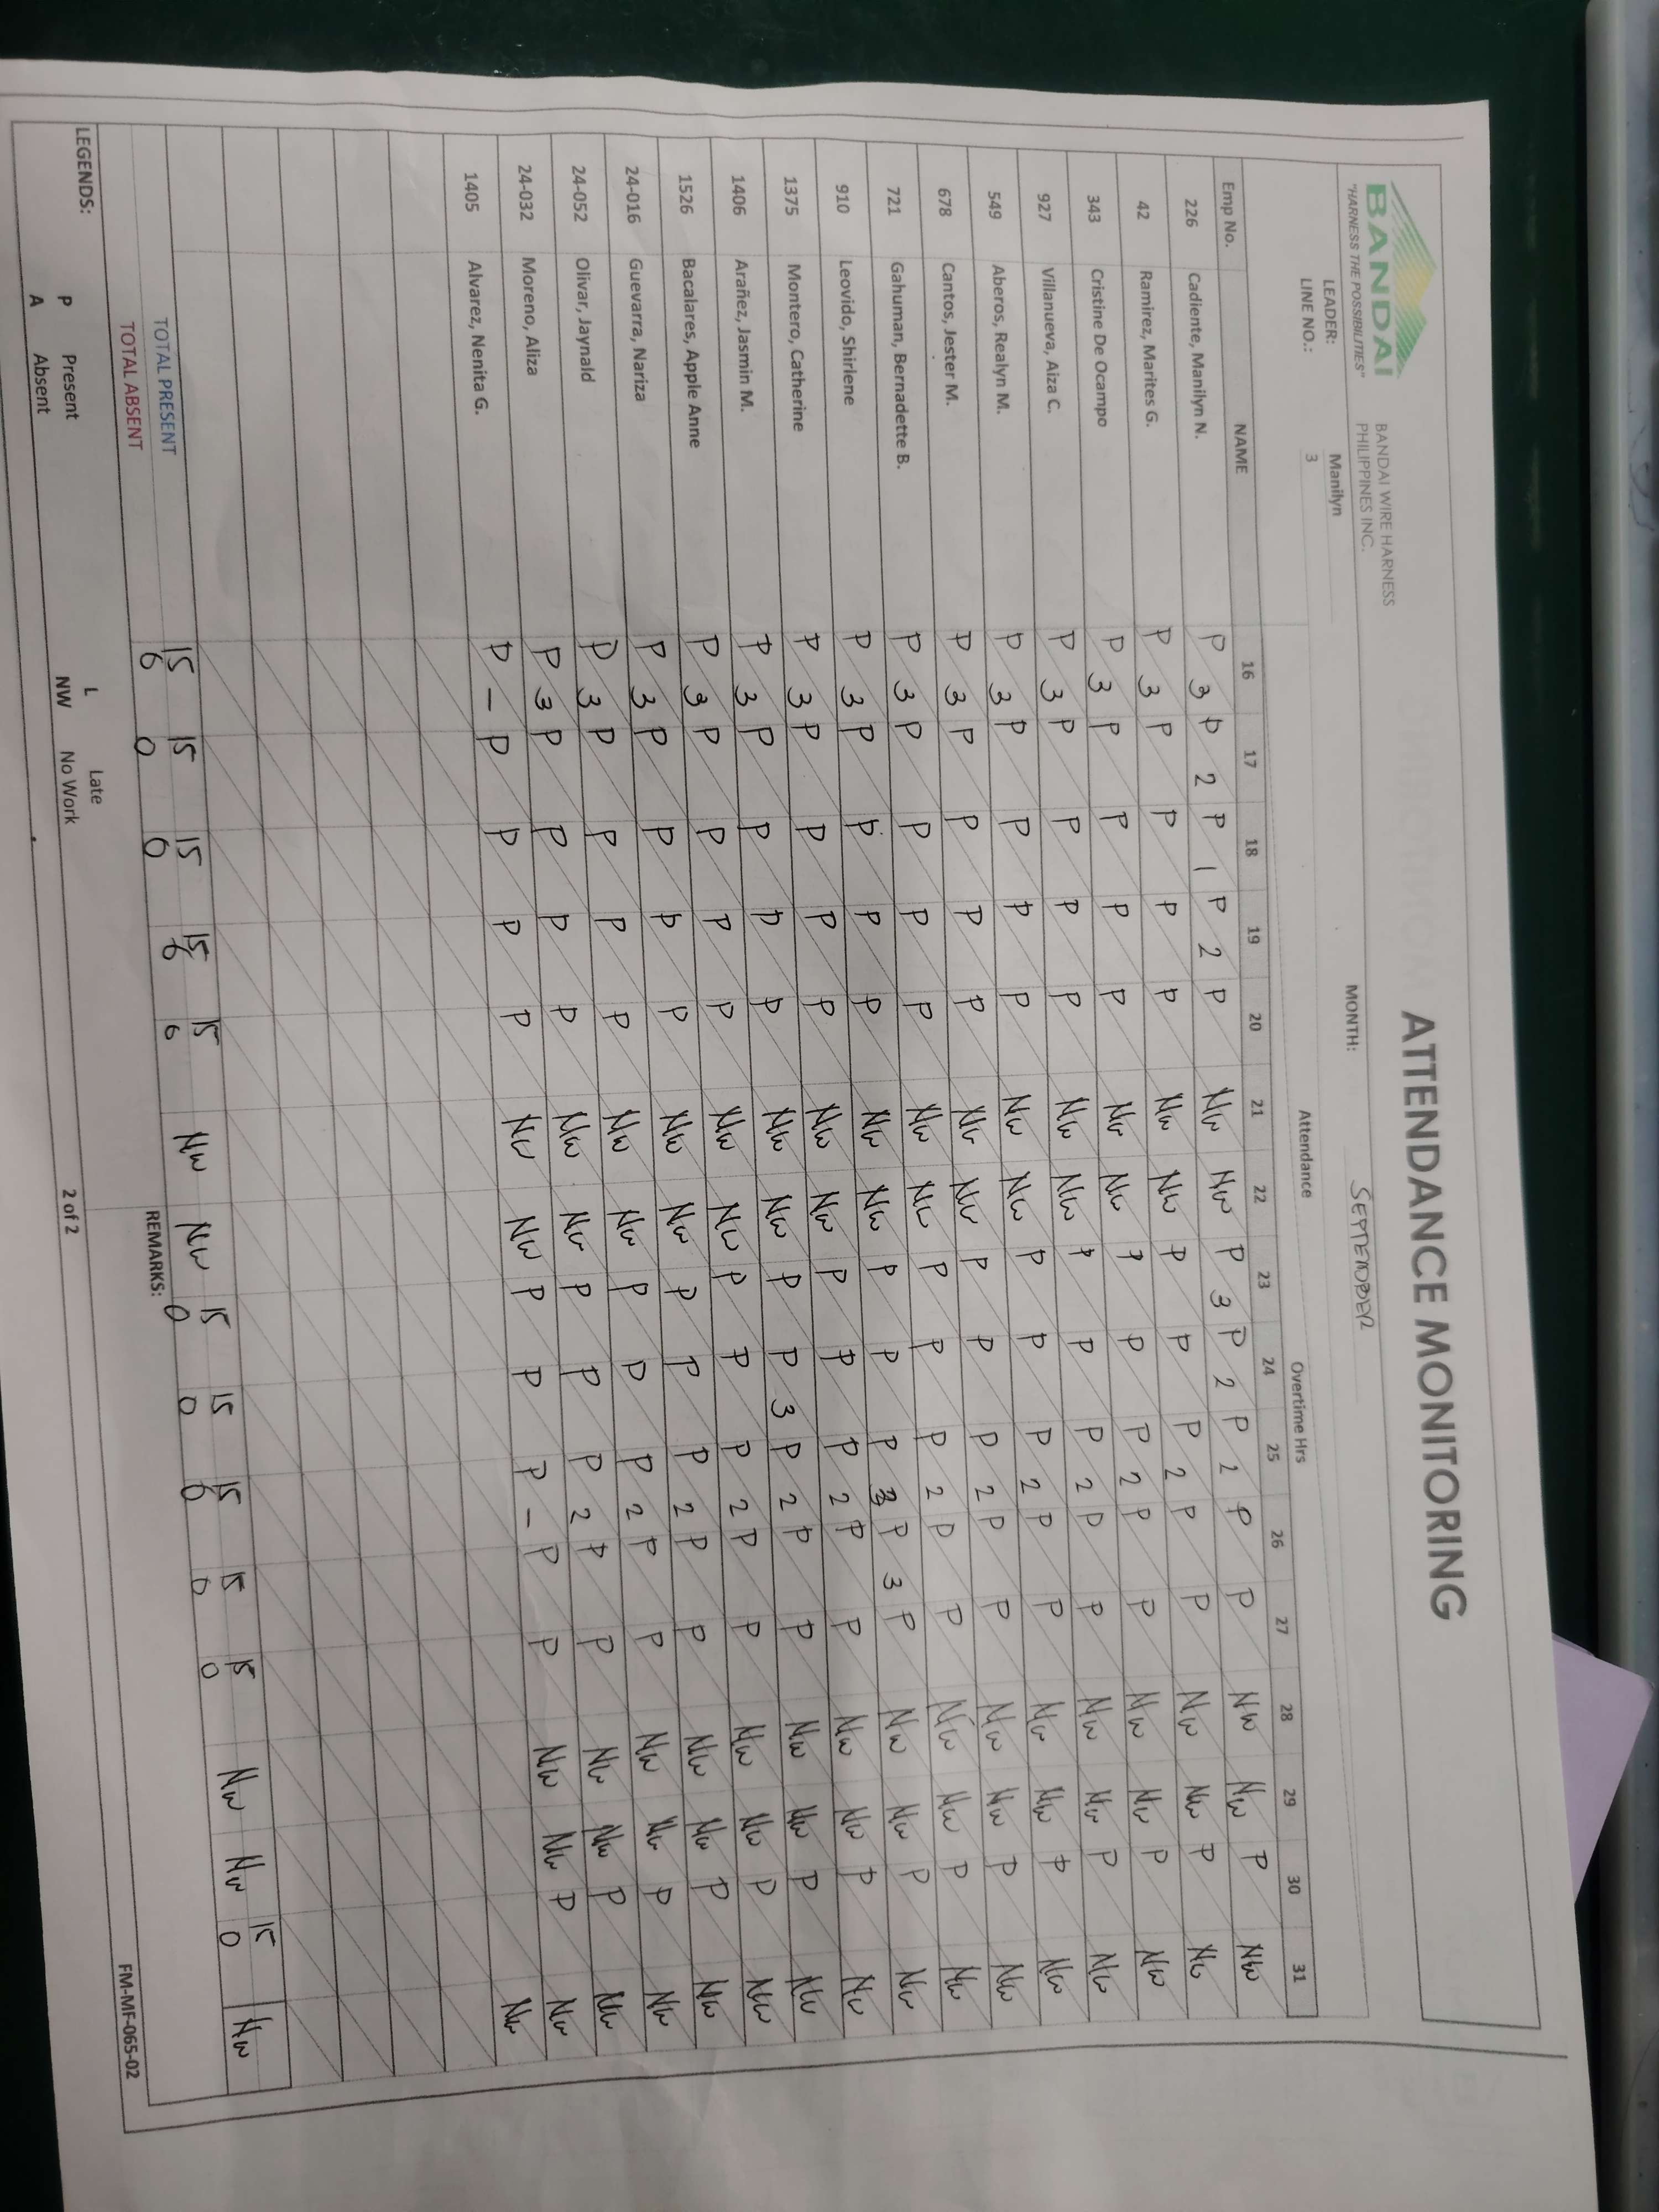 BANDAI
"HARNESS THE POSSIBILITIES"
BANDAI WIRE HARNESS
PHILIPPINES INC.
ATTENDANCE MONITORING
LEADER: Manilyn MONTH: SEPTEMBER
LINE NO.: 3
Attendance Overtime Hrs
Emp No. NAME 16 17 18 19 20 21 22 23 24 25 26 27 28 29 30 31
226 Cadiente, Manilyn N. P 3 P 2 P 1 P 2 P NW NW P 3 P 2 P 2 P P NW NW P NW
42 Ramirez, Marites G. P 3 P P P P NW NW P P P 2 P P NW NW P NW
343 Cristine De Ocampo P 3 P P P P NW NW P P P 2 P P NW NW P NW
927 Villanueva, Aiza C. P 3 P P P P NW NW P P P 2 P P NW NW P NW
549 Aberos, Realyn M. P 3 P P P P NW NW P P P 2 P P NW NW P NW
678 Cantos, Jester M. P 3 P P P P NW NW P P P 2 P P NW NW P NW
721 Gahuman, Bernadette B. P 3 P P P P NW NW P P P 2 P P NW NW P NW
910 Leovido, Shirlene P 3 P P P P NW NW P P P 3 P 3 P NW NW P NW
1375 Montero, Catherine P 3 P P P P NW NW P P P 2 P P NW NW P NW
1406 Arañez, Jasmin M. P 3 P P P P NW NW P P 3 P 2 P P NW NW P NW
1526 Bacalares, Apple Anne P 3 P P P P NW NW P P P 2 P P NW NW P NW
24-016 Guevarra, Nariza P 3 P P P P NW NW P P P 2 P P NW NW P NW
24-052 Olivar, Jaynald P 3 P P P P NW NW P P P 2 P P NW NW P NW
24-032 Moreno, Aliza P 3 P P P P NW NW P P P 2 P P NW NW P NW
1405 Alvarez, Nenita G. P - P P P P NW NW P P P - P P NW NW P NW
TOTAL PRESENT 15 15 15 15 15 NW NW 15 15 15 15 15 NW NW 15 NW
TOTAL ABSENT 0 0 0 0 0 0 0 0 0 0 0
REMARKS:
LEGENDS:
P Present L Late
A Absent NW No Work
2 of 2
FM-MF-065-02